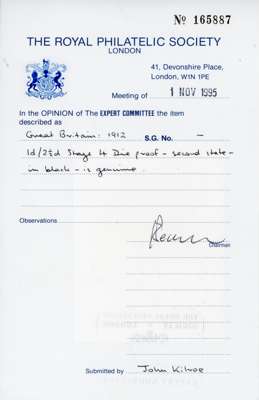 No 165887
THE ROYAL PHILATELIC SOCIETY
LONDON
41, Devonshire Place,
London, W1N 1PE
Meeting of 1 NOV 1995
In the OPINION of The EXPERT COMMITTEE the item
described as
Great Britain: 1912 S.G. No. -
1d/2½d Stage 4 Die proof - second state -
in black - is genuine.
Observations
Chairman
Submitted by John Kilroe